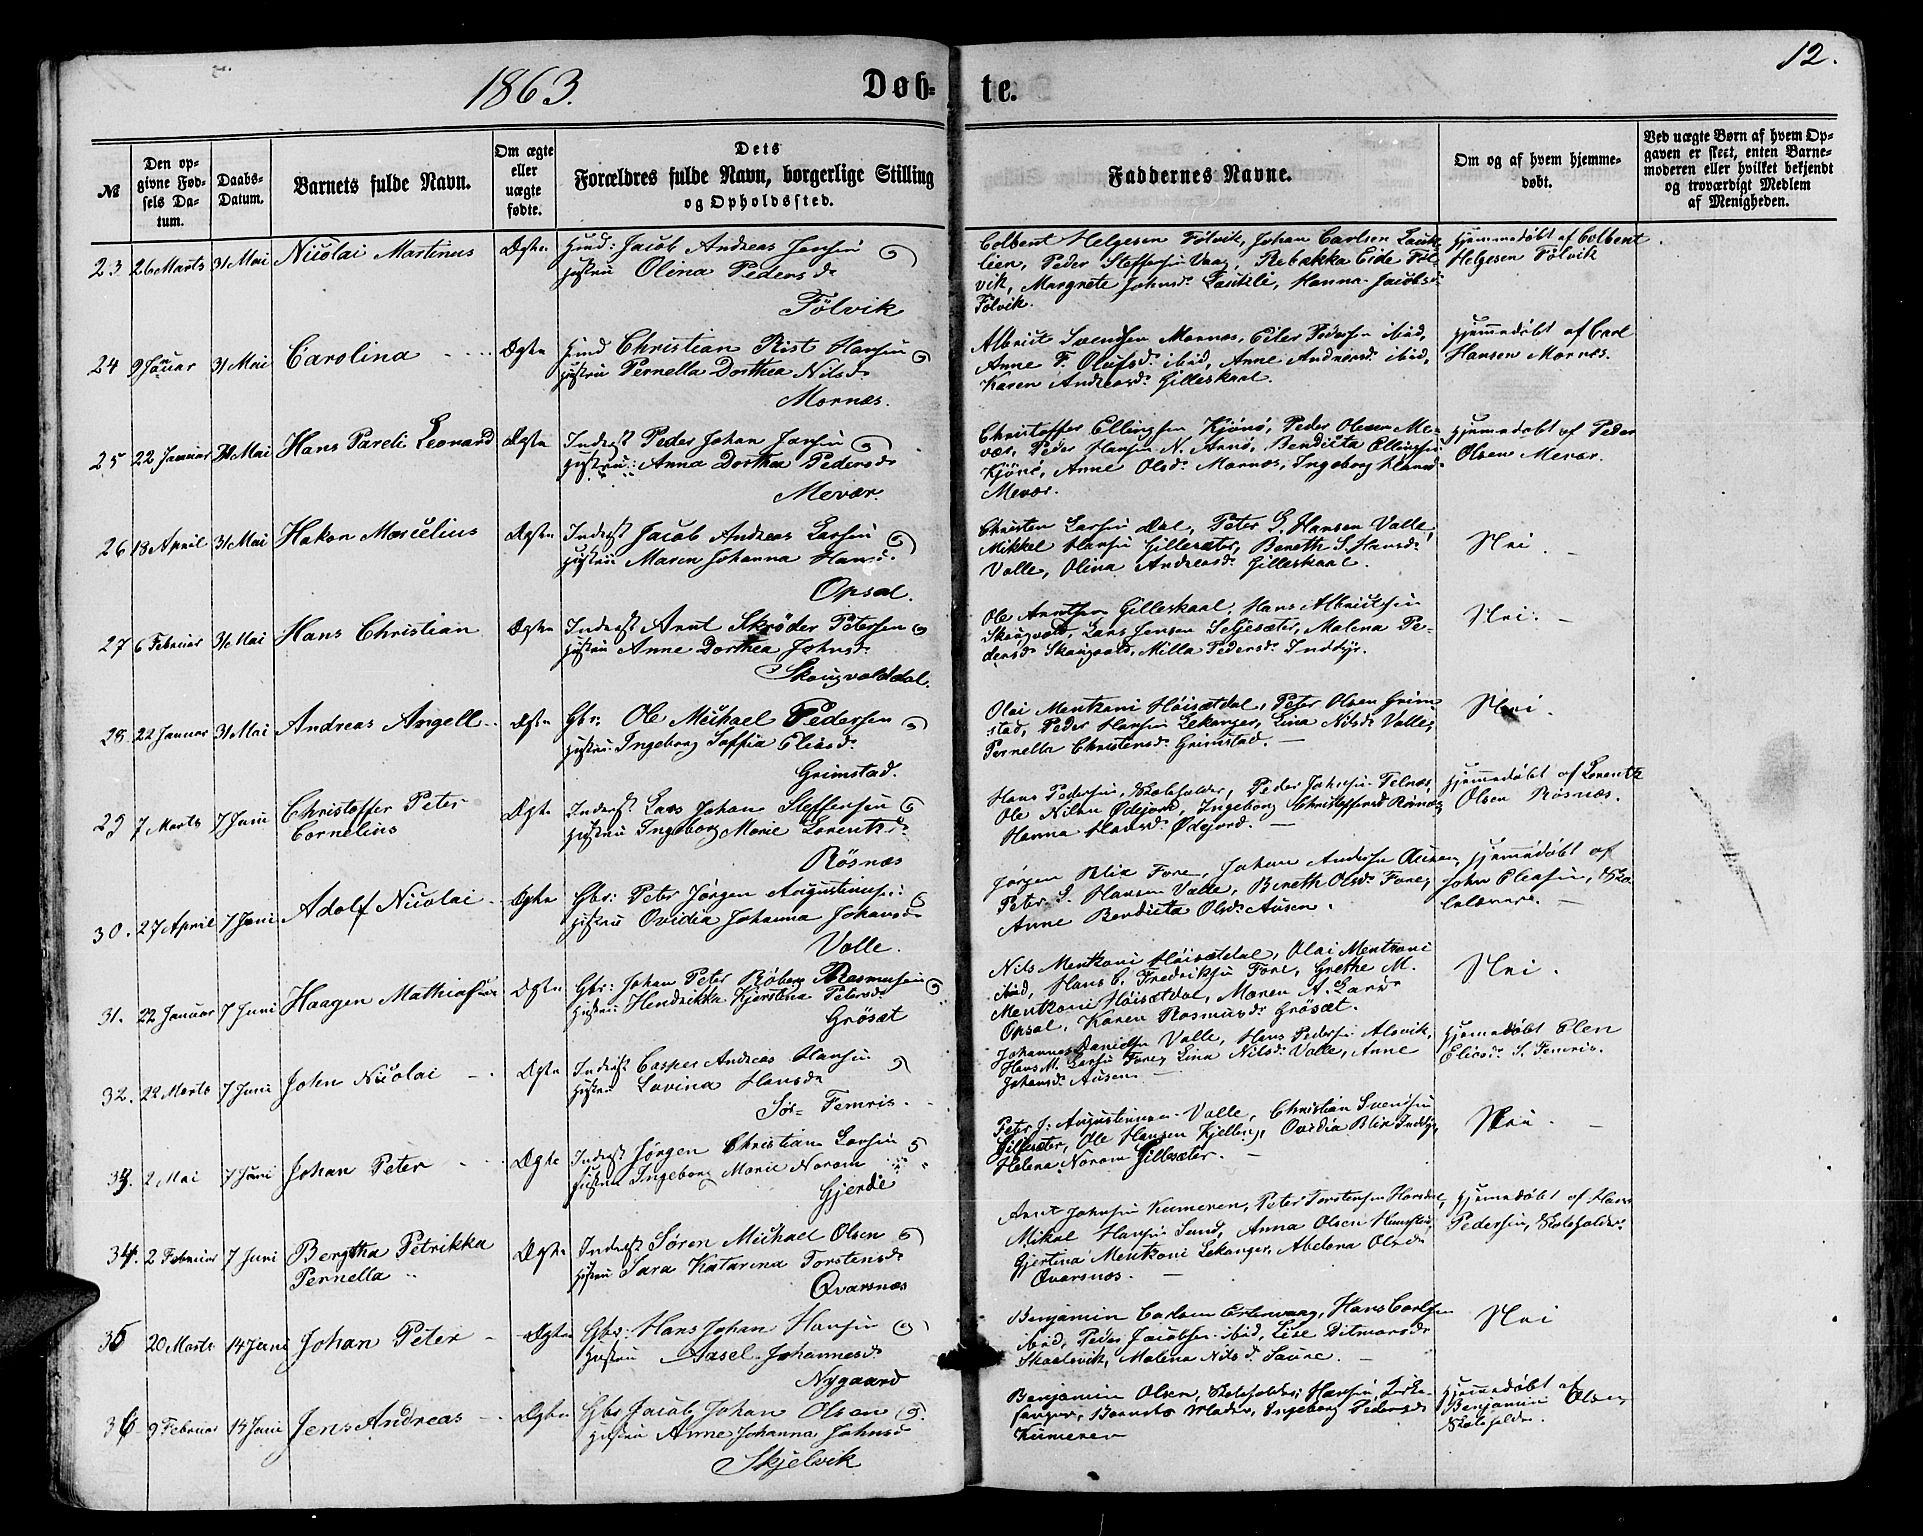 1863.
Døb-
te.
12.
№
Den op-
givne Fød-
sels Da-
tum.
Daabs-
Datum.
Barnets fulde Navn.
Om ægte
eller
uægte
fødte.
Dets
Forældres fulde Navn, borgerlige Stilling
og Opholdssted.
Faddernes Navne.
Om og af hvem hjemme-
døbt.
Ved uægte Børn af hvem Op-
gaven er skeet, enten Barne-
moderen eller hvilket bekjendt
og troværdigt Medlem
af Menigheden.
23 26 Marts 31 Mai Nicolai Martinus Ægte
Jacob Andreas Jensen
Hustru Olina Pedersd.
Fölvik
Colbent Helgesen Fölvik, Johan Carlsen
lien, Peder Steffensen Vaag, Rebakka Eide Föl-
vik, Margrete Johnsd. Hanna Jacobsd.
Fölvik.
Hjemmedöbt af Colbent
Helgesen Fölvik
24 9 Januar 31 Mai Carolina Ægte
Christian Rist Hansen
Hustru Pernella Dorthea Nilsd.
Mornæs.
Albrict Svendsen Mornæs, Eiler Pedersen ibid,
Anne F. Olufsd. ibid, Anne Andreasd. ibid,
Karen Andreasd. Gilleskaal.
Hjemmedöbt af Carl
Hansen Mornæs.
25 22 Januar 31 Mai Hans Pareli Leonard Ægte
Inderst Peder Johan Jensen
Hustru: Anna Dorthea Pedersd.
Mevær.
Christoffer Ellingsen Kjönö, Peder Olsen Me-
vær, Peder Hansen N. Arnö, Bendicta Ellingsd.
Kjönö, Anne Olsd. Mornæs, Ingeborg Hansd.
Mevær.
Hjemmedöbt af Peder
Olsen Mevær.
26 18 April 31 Mai Hakon Marcelius Ægte
Inderst Jacob Andreas Larsen
Hustru Maren Johanna Hansd.
Opsal.
Christen Larsen Dal, Peter G. Hansen Valle,
Mikkel Hansen Gillesæter, Bereth S. Hansd.
Valle, Olina Andreasd. Gilleskaal.
Nei.
27 6 Februar 31 Mai Hans Christian Ægte
Inderst Arnt Skröder Petersen
Hustru Anne Dorthea Johnsd.
Skougvolddal.
Ole Arntsen Gilleskaal, Hans Albrictsen
Skougvold, Lars Jensen Seljesæter, Malena Pe-
dersd. Skougvold, Milla Pedersd. Inddyr.
Nei.
28. 22 Januar 31 Mai Andreas Angell Ægte
Gbr: Ole Michael Pedersen
Hustru: Ingeborg Soffia Eliasd.
Grimstad.
Olai Mentzoni Höisætdal, Peter Olsen Grim-
stad, Peder Hansen Lekanger, Lina Nilsd. Valle,
Pernella Christensd. Grimstad.
Nei.
29 7 Marts 7 Juni Christoffer Peter
Cornelius
Ægte
Inderst Lars Johan Steffensen
Hustru Ingeborg Marie Lorentsd.
Rösnæs
Hans Pedersen, Skoleholder, Peder Johnsen Telnæs,
Ole Nilsen Ödejord, Ingeborg Christoffersd. Rösnæs,
Hanna Hansd. Ödejord.
Hjemmedöbt af Lorents
Olsen Rösnæs.
30. 27 April 7 Juni Adolf Nicolai Ægte
Gbr: Peter Jörgen Augustinusen
Hustru Ovidia Johanna Johansd.
Valle.
Jörgen Blix Fore, Johan Andersen Ausen,
Peter S. Hansen Valle, Bereth Olsd. Fore,
Anne Bendicta Olsd. Ausen.
Hjemmedöbt af
John Eliasen, Sko-
lelærer.
31. 22 Januar 7 Juni Haagen Mathias Ægte
Gbr: Johan Peter Sjöberg Rasmusen
Hustru: Hendrikka Kjerstina Petersd.
Grösæt
Nils Mentzoni Höisætdal, Olai Mentzoni
ibid, Hans C. Fredriksen Fore, Grethe M.
Mentzoni Höisætdal, Maren A. Larsd.
Opsal, Karen Rasmusd. Grösæt.
Nei.
32. 22 Marts 7 Juni John Nicolai Ægte
Inderst Casper Andreas Hansen
Hustru Lovina Hansd.
Sör-Femris.
Johannes Danielsen Valle, Hans Pedersen Alsvik,
Hans M. Larsen Fore, Lina Nilsd. Valle, Anne
Johansd. Ausen.
Hjemmedöbt Elen
Eliasd. S. Femris.
33. 2 Mai 7 Juni Johan Peter Ægte
Inderst Jörgen Christian Larsen
Hustru Ingeborg Marie Norom
Gjerde
Peter J. Augustinusen Valle, Christian Svendsen
Gillesæter, Ole Hansen Kjelling, Ovidia Blix Inddyr,
Helena Norom Gillesæter.
Nei.
34. 2 Februar 7 Juni Bergtha Petrikka
Pernella
Ægte
Inderst Sören Michael Olsen
Hustru Sara Katarina Torstensd.
Qvarsnæs
Arnt Johnsen Kumeren, Peter Torstensen Horsdal,
Mikal Hansen Sund, Anna Olsen
Gjertina Mentzoni Lekanger, Abelona Olsd.
Qvarsnæs.
Hjemmedöbt af Hans
Pedersen, Skoleholder.
35 20 Marts 14 Juni Johan Peter Ægte
Gbr: Hans Johan Hansen
Hustru Aasel Johannesd.
Nygaard
Benjamin Carlsen Hans Carlsen
ibid, Peder Jacobsen ibid, Lise Ditmarsd.
Skaalsvik, Malena Nilsd. Saure.
Nei
36 9 Februar 14 Juni Jens Andreas Ægte
Gbr Jacob Johan Olsen
Hustru Anne Johanna Johnsd.
Skjelvik
Benjamin Olsen, Skoleholder, Hansen, Kirke-
sanger, Barnets Moder, Ingeborg Pedersd.
Kumeren
Hjemmedöbt af
Benjamin Olsen,
Skoleholder.